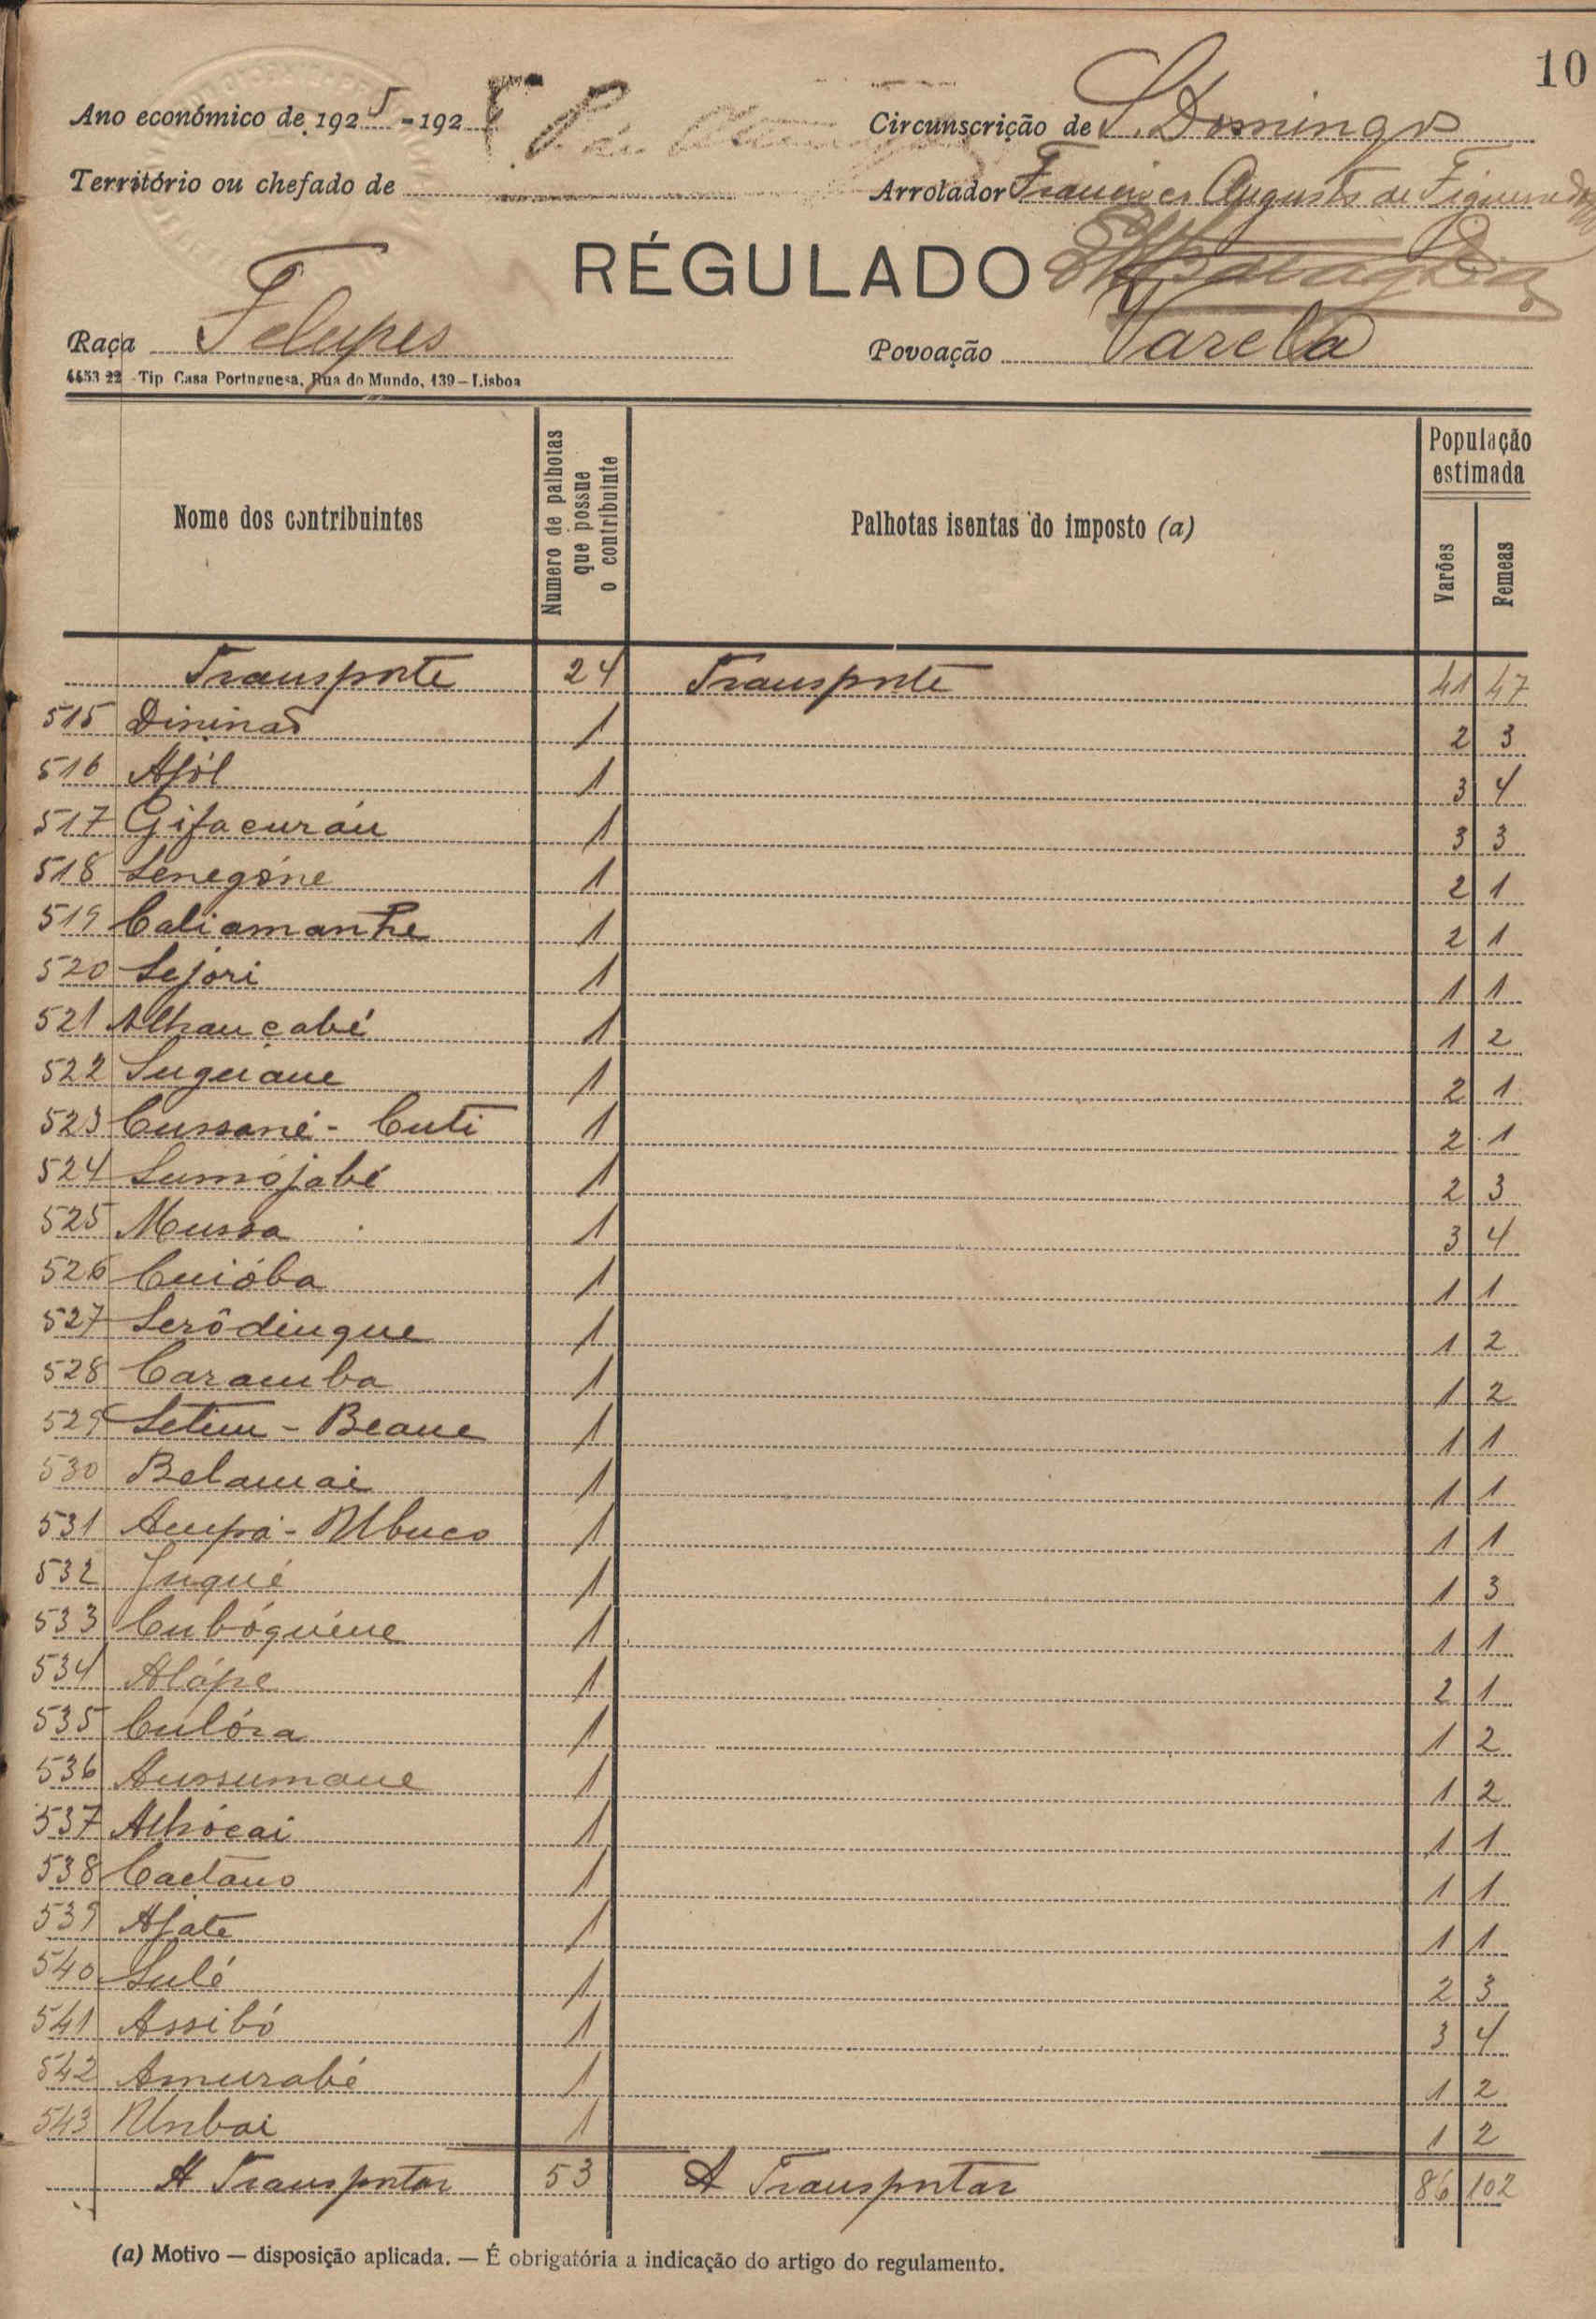 10
Ano económico de 1925-192 Circunscrição de S. Domingos
Território ou chefado de Arrolador Francisco Augusto de Figueiredo
RÉGULADO
Raça Felupes Povoação Varella
4453 22 - Tip Casa Portuguesa, Rua do Mundo, 139 - Lisboa
Nome dos contribuintes Numero de palhotas que possue o contribuinte Palhotas isentas do imposto (a) População estimada
Varões Femeas
Transporte 24 Transporte 41 47
515 Dininaò 1 2 3
516 Afól 1 3 4
517 Gifacuráu 1 3 3
518 Senegóne 1 2 1
519 Caliamanhe 1 2 1
520 Sejori 1 1 1
521 Alhançabé 1 1 2
522 Suguiane 1 2 1
523 Cussané - Cuti 1 2 1
524 Sumójabé 1 2 3
525 Mussa 1 3 4
526 Cuióba 1 1 1
527 Serôdingue 1 1 2
528 Caramba 1 1 2
529 Setim - Beane 1 1 1
530 Belamai 1 1 1
531 Ampá - Mbuco 1 1 1
532 Juqué 1 1 3
533 Cubóquéne 1 1 1
534 Alópe 1 2 1
535 Culóra 1 1 2
536 Aussumane 1 1 2
537 Alhócai 1 1 1
538 Caetano 1 1 1
539 Afate 1 1 1
540 Sulé 1 2 3
541 Assibó 1 3 4
542 Amurabé 1 1 2
543 Unbai 1 1 2
A Transportar 53 A Transportar 86 102
(a) Motivo — disposição aplicada. — É obrigatória a indicação do artigo do regulamento.